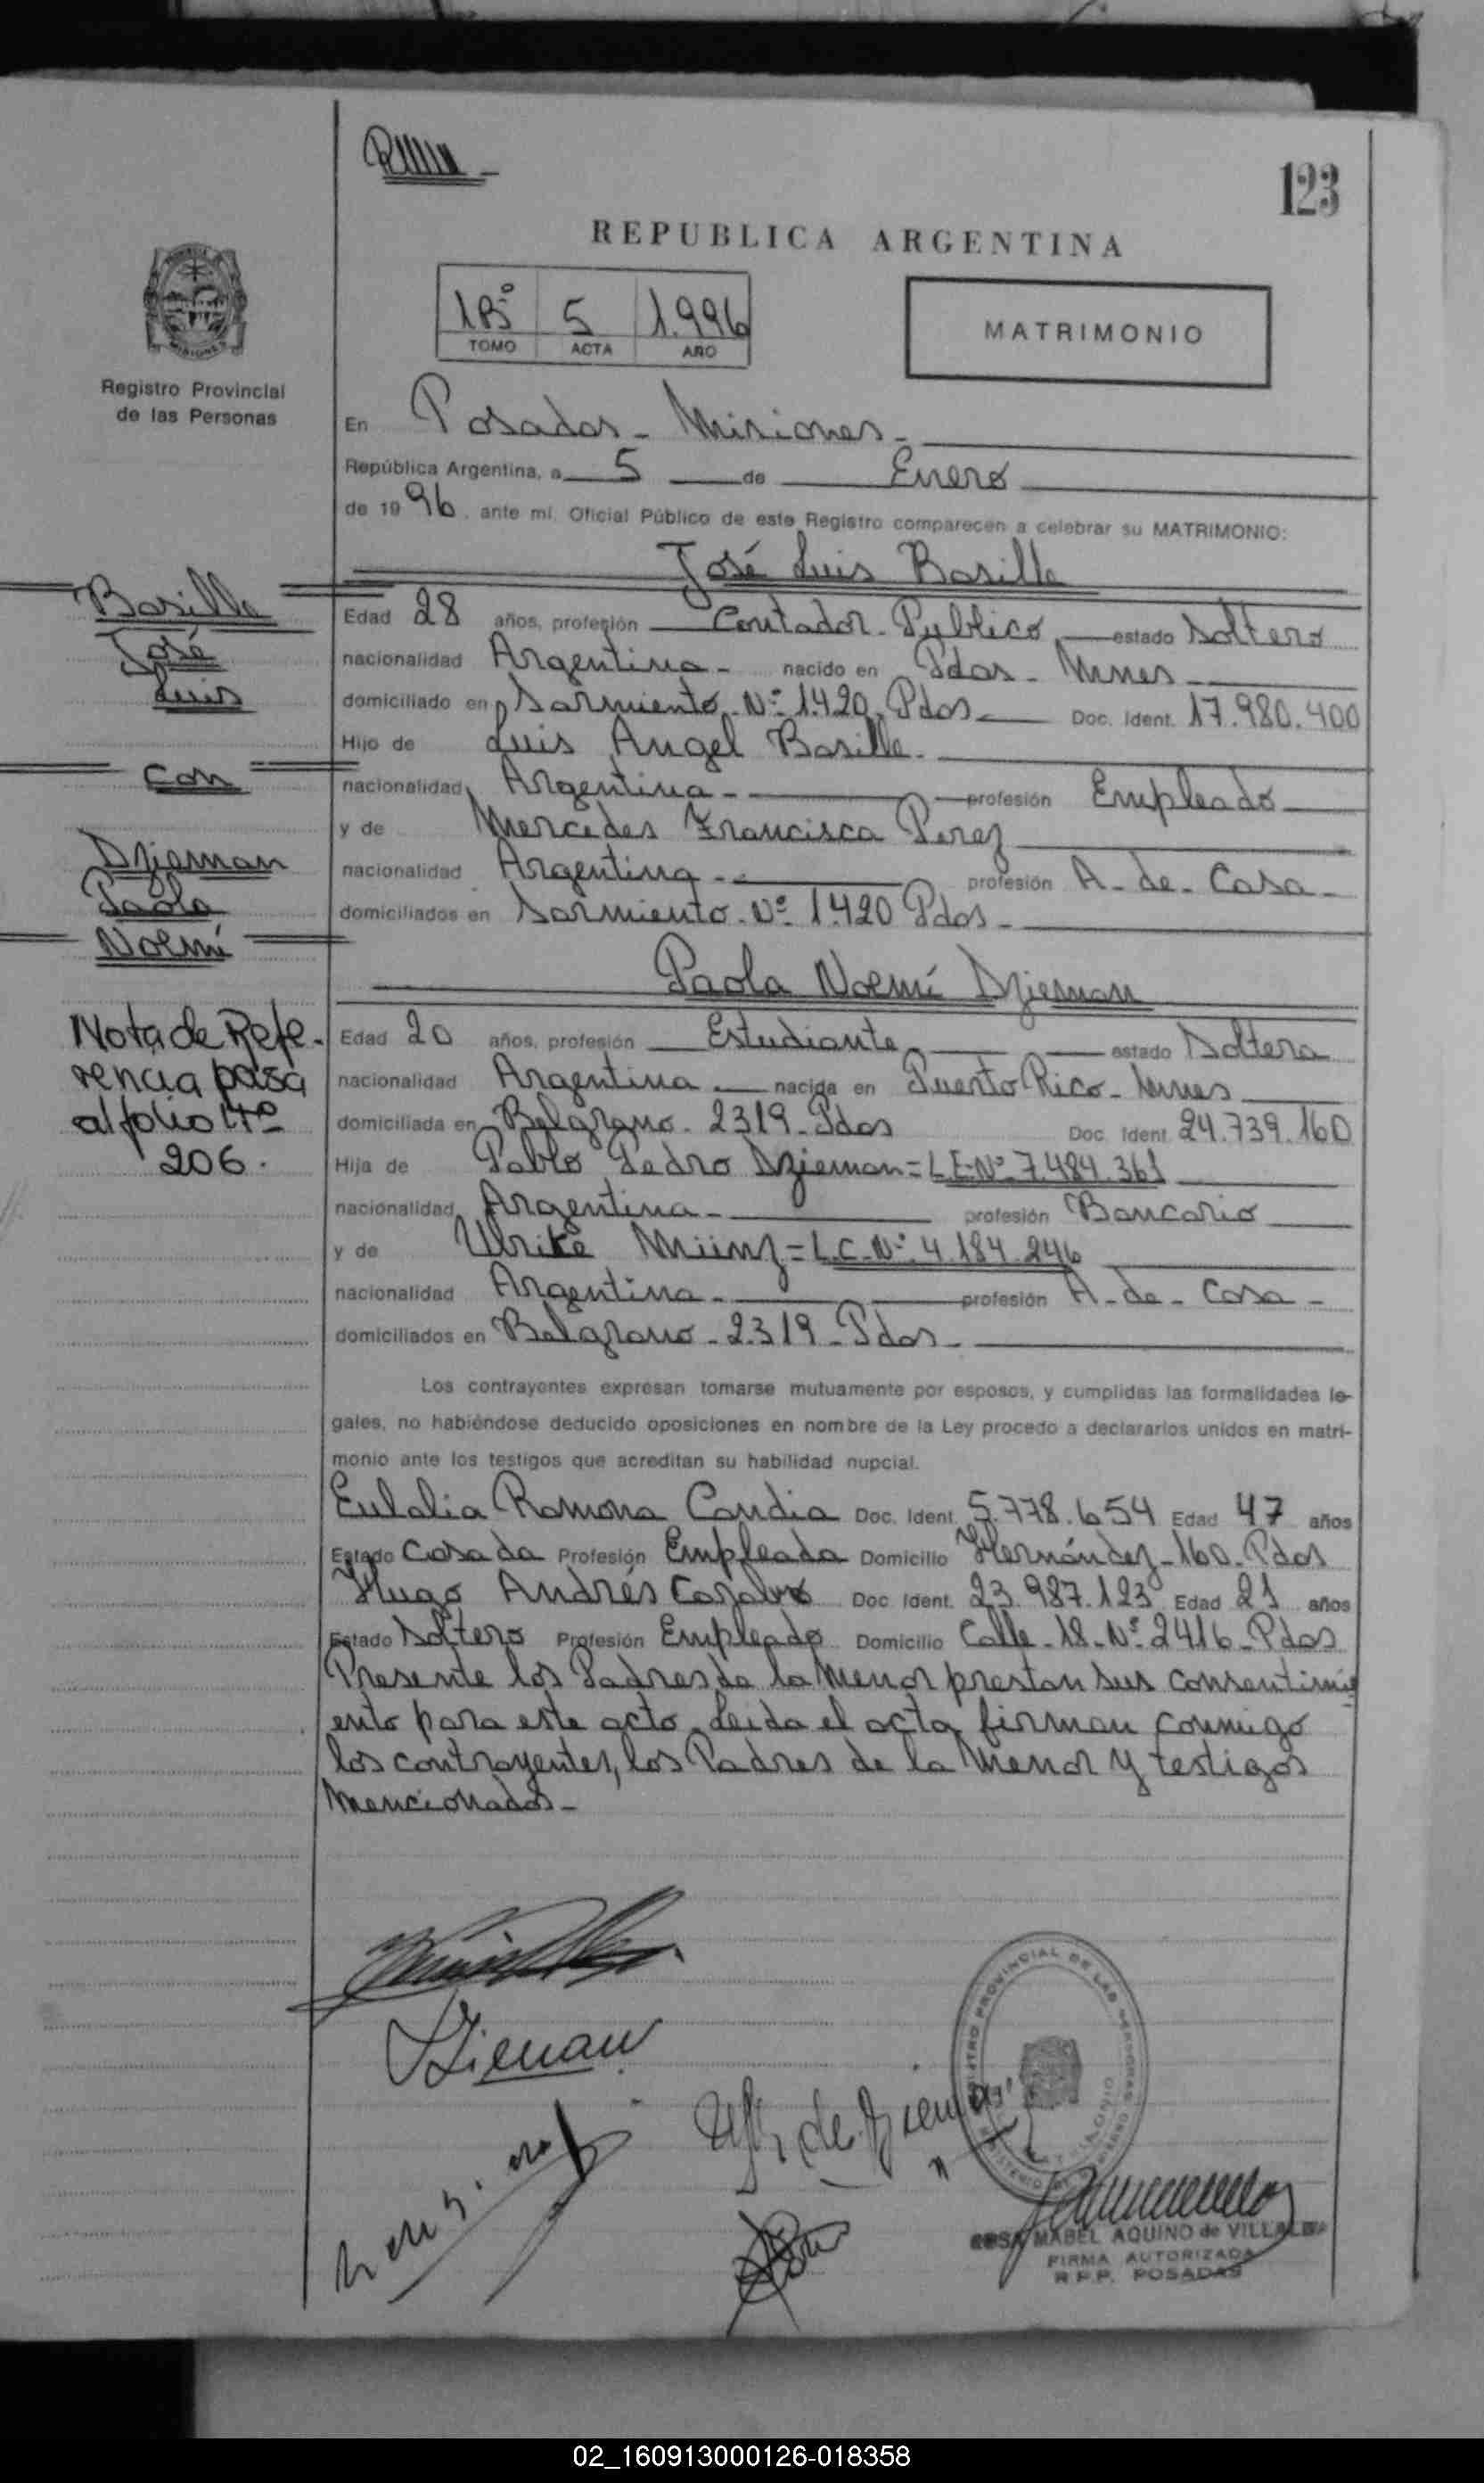 123
REPUBLICA ARGENTINA
1Bº 5 1.996
TOMO ACTA AÑO
MATRIMONIO
Registro Provincial
de las Personas
En Posadas - Misiones -
República Argentina, a 5 de Enero
de 1996. ante mí, Oficial Público de este Registro comparecen a celebrar su MATRIMONIO:
José Luis Basilla
Edad 28 años, profesión Contador Publico estado Soltero
nacionalidad Argentina - nacido en Pdas - Mnes
domiciliado en Sarmiento Nº 1420 Pdas Doc. Ident. 17.980.400
Hijo de Luis Angel Basilla
nacionalidad Argentina - profesión Empleado
y de Mercedes Francisca Perez
nacionalidad Argentina - profesión A - de - Casa -
domiciliados en Sarmiento Nº 1420 Pdas -
Paola Noemí Dzieman
Edad 20 años, profesión Estudiante estado Soltera
nacionalidad Argentina nacida en Puerto Rico - Mnes
domiciliada en Belgrano - 2319 - Pdas Doc. Ident. 24.739.160
Hija de Pablo Pedro Dzieman = L.E.Nº 7.484.361
nacionalidad Argentina - profesión Bancario
y de Ulrike Münz = L.C.Nº 4.184.246
nacionalidad Argentina - profesión A - de - Casa -
domiciliados en Belgrano - 2319 - Pdas -
Los contrayentes expresan tomarse mutuamente por esposos, y cumplidas las formalidades le-
gales, no habiéndose deducido oposiciones en nombre de la Ley procedo a declararlos unidos en matri-
monio ante los testigos que acreditan su habilidad nupcial.
Eulalia Ramona Candia Doc. Ident. 5.778.654 Edad 47 años
Estado Casada Profesión Empleada Domicilio Hernández - 160 - Pdas
Hugo Andrés Doc. Ident. 23.987.123 Edad 21 años
Estado Soltero Profesión Empleado Domicilio Calle - 18 - Nº 2416 - Pdas
Presente los Padres de la Menor prestan sus consentimi
ento para este acto. Leida el acta firman conmigo
los contrayentes, los Padres de la Menor y testigos
mencionados -
Basilla
José
Luis
con
Dzieman
Paola
Noemí
Nota de Refe-
rencia pasa
al folio Nº
206.
Dzieman
de Dzieman
REGISTRO PROVINCIAL DE LAS PERSONAS
ROSA MABEL AQUINO de VILLALBA
FIRMA AUTORIZADA
R.P.P. POSADAS
02_160913000126-018358